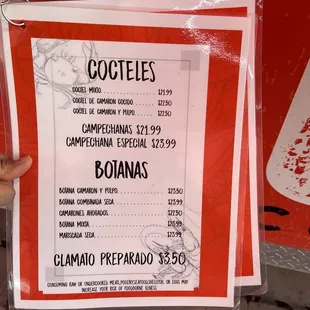 COCTELES
COCTEL MIXTO.............$21.99
COCTEL DE CAMARON COCIDO.....$22.50
COCTEL DE CAMARON Y PULPO.....$22.50
CAMPECHANAS $21.99
CAMPECHANA ESPECIAL $23.99
BOTANAS
BOTANA CAMARON Y PULPO.........$23.50
BOTANA COMBINADA SECA.........$23.99
CAMARONES AHOGADOS.........$23.50
BOTANA MIXTA.............$23.99
MARISCADA SECA.............$23.99
CLAMATO PREPARADO $3.50
CONSUMING RAW OR UNDERCOOKED MEATS, POULTRY, SEAFOOD, SHELLFISH, OR EGGS MAY
INCREASE YOUR RISK OF FOODBORNE ILLNESS